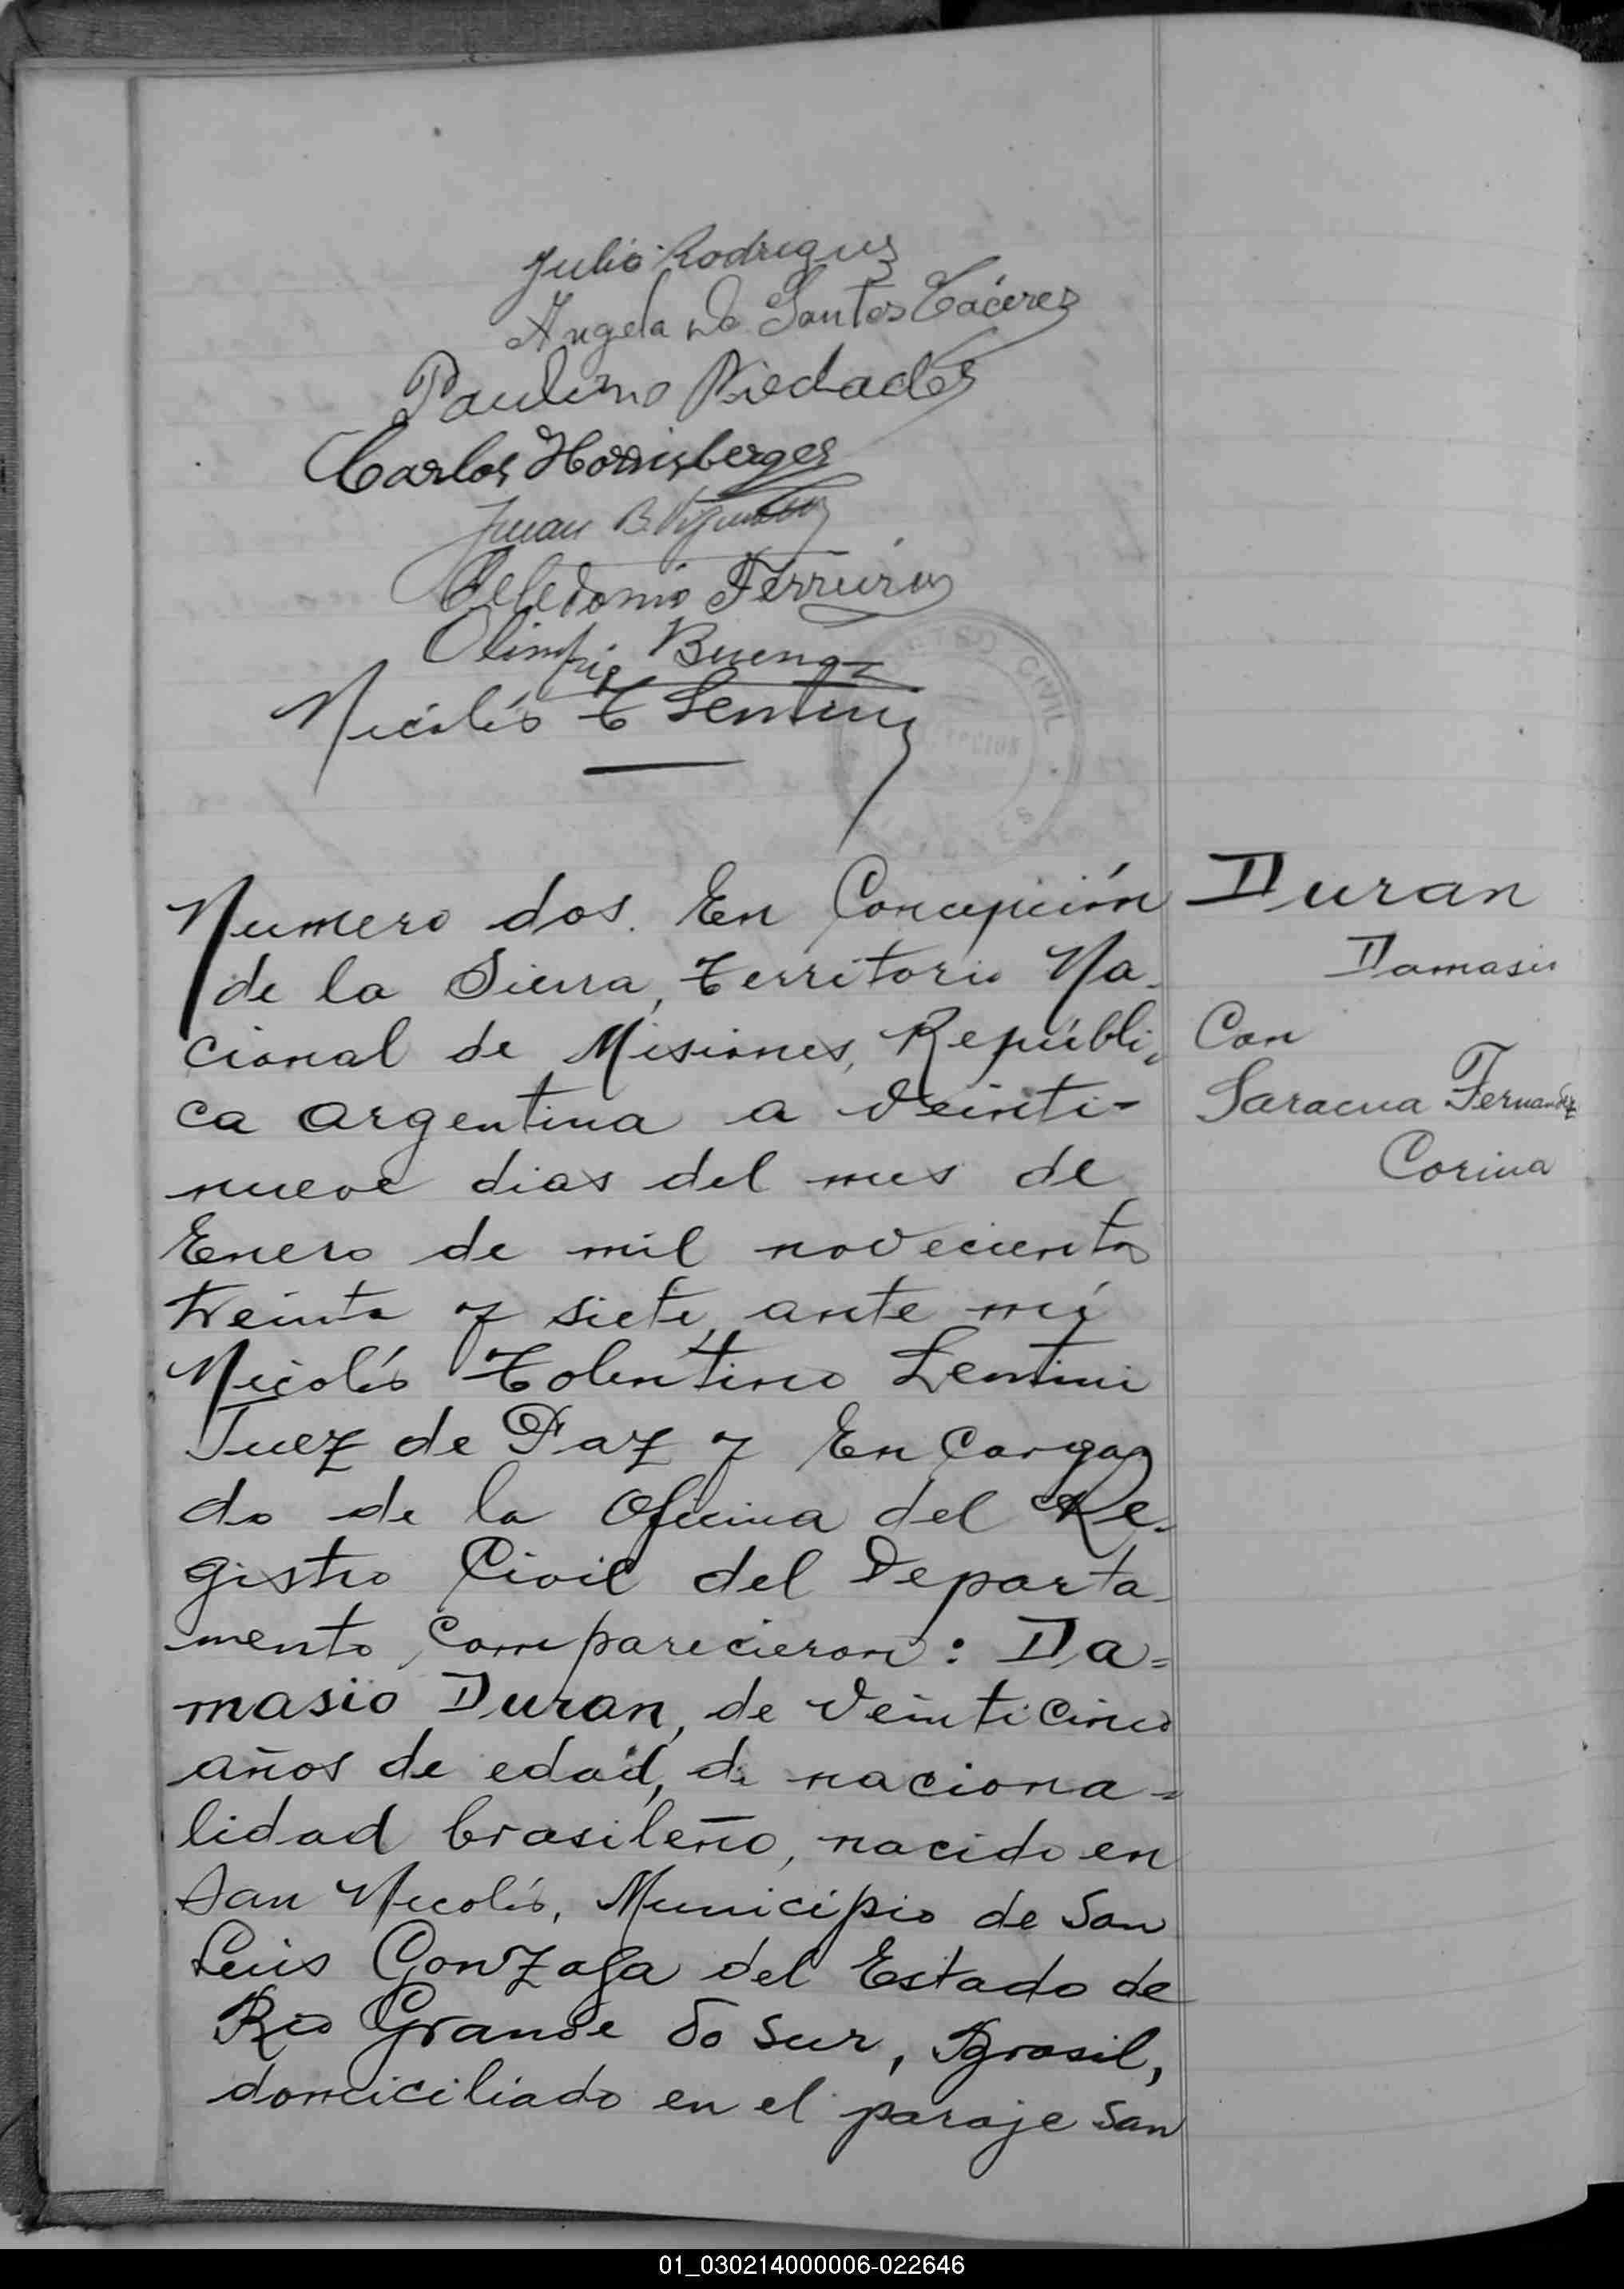 Julio Rodriguez
Angela Do Santos Cáceres
Paulino Piedades
Carlos
Juan B.
Celedonio Ferreira
Olimpio Bueno
Nicolás T Lentini
CIVIL
Numero dos. En Concepción
de la Sierra, Territorio Na-
cional de Misiones, Repúbli-
ca Argentina a veinti-
nueve dias del mes de
Enero de mil novecientos
treinta y siete, ante mí
Nicolás Tolentino Lentini
Juez de Paz y Encarga
do de la Oficina del Re-
gistro Civil del Departa-
mento, comparecieron: Da=
masio Duran, de veinticinco
años de edad, de naciona-
lidad brasileño, nacido en
San Nicolás, Municipio de San
Luis Gonzaga del Estado de
Rio Grande do Sur, Brasil,
domiciliado en el paraje San
Duran
Damasio
Con
Saracua Fernandez
Corina
01_030214000006-022646